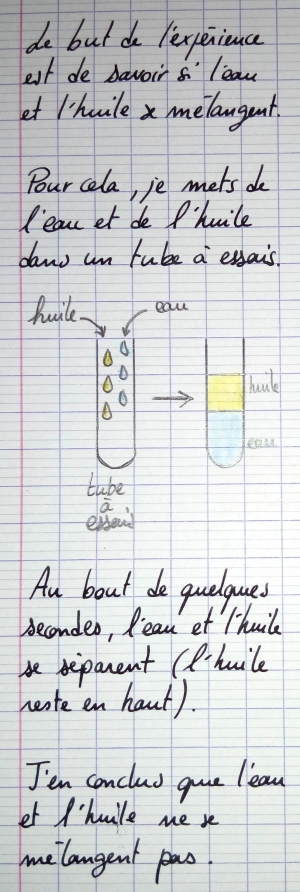 Le but de l'expérience
est de savoir si l'eau
et l'huile se mélangent.
Pour cela, je mets de
l'eau et de l'huile
dans un tube à essais.
huile
eau
huile
eau
tube
à
essais
Au bout de quelques
secondes, l'eau et l'huile
se séparent (l'huile
reste en haut).
J'en conclus que l'eau
et l'huile ne se
mélangent pas.